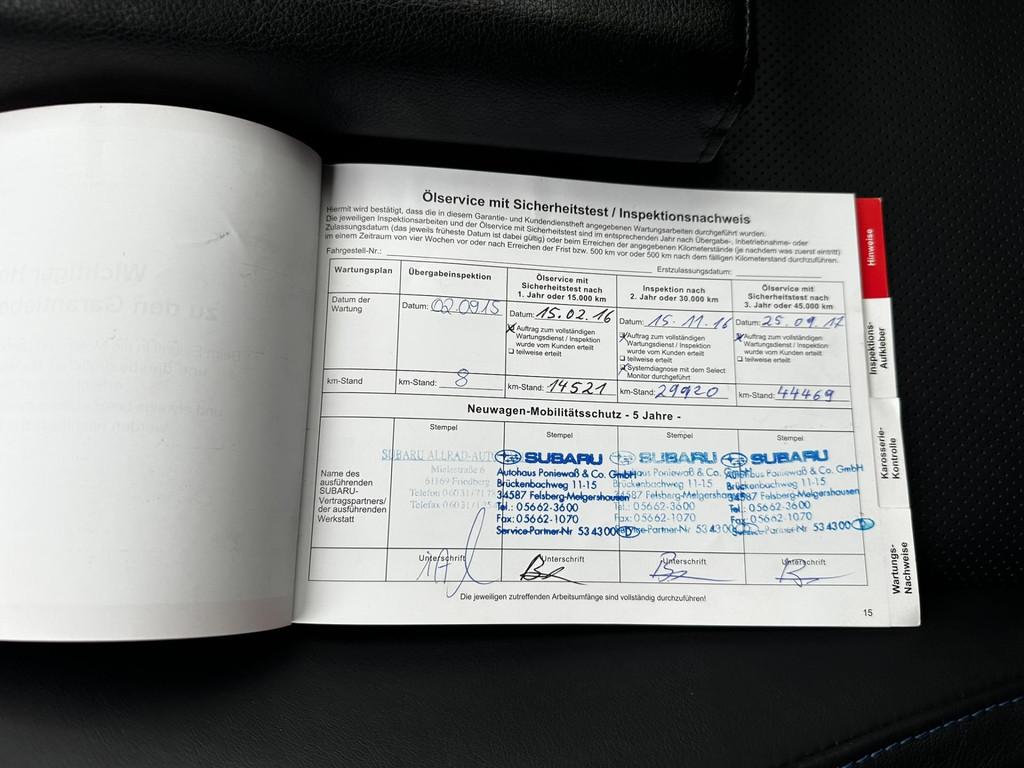 Ölservice mit Sicherheitstest / Inspektionsnachweis
Hiermit wird bestätigt, dass die in diesem Garantie- und Kundendienstheft angegebenen Wartungsarbeiten durchgeführt wurden.
Die jeweiligen Inspektionsarbeiten und der Ölservice mit Sicherheitstest sind im entsprechenden Jahr nach Übergabe-, Inbetriebnahme- oder
Zulassungsdatum (das jeweils früheste Datum ist dabei gültig) oder beim Erreichen der angegebenen Kilometerstände (je nachdem was zuerst eintritt)
im einem Zeitraum von vier Wochen vor oder nach Erreichen der Frist bzw. 500 km vor oder 500 km nach dem fälligen Kilometerstand durchzuführen.
Fahrgestell-Nr.: Erstzulassungsdatum:
Wartungsplan
Übergabeinspektion
Ölservice mit
Sicherheitstest nach
1. Jahr oder 15.000 km
Inspektion nach
2. Jahr oder 30.000 km
Ölservice mit
Sicherheitstest nach
3. Jahr oder 45.000 km
Datum der
Wartung
Datum: 02.09.15
Datum: 15.02.16
Auftrag zum vollständigen
Wartungsdienst / Inspektion
wurde vom Kunden erteilt
teilweise erteilt
Datum: 15.11.16
Auftrag zum vollständigen
Wartungsdienst / Inspektion
wurde vom Kunden erteilt
teilweise erteilt
Systemdiagnose mit dem Select
Monitor durchgeführt
Datum: 25.09.17
Auftrag zum vollständigen
Wartungsdienst / Inspektion
wurde vom Kunden erteilt
teilweise erteilt
km-Stand
km-Stand: 8
km-Stand: 14521
km-Stand: 29920
km-Stand: 44469
Neuwagen-Mobilitätsschutz - 5 Jahre -
Name des
ausführenden
SUBARU-
Vertragspartners/
der ausführenden
Werkstatt
Stempel
SUBARU ALLRAD-AUTO
Mielestraße 6
61169 Friedberg
Telefon 06031/71
Telefax 06031/1
Unterschrift
Stempel
SUBARU
Autohaus Poniewaß & Co. GmbH
Brückenbachweg 11-15
34587 Felsberg-Melgershausen
Tel.: 05662-3600
Fax: 05662-1070
Service-Partner-Nr 534300
Unterschrift
Stempel
SUBARU
Poniewaß & Co.
Brückenbachweg 11-15
Felsberg-Melgershausen
Tel.: 05662-3600
Fax: 05662-1070
Service-Partner-Nr 534300
Unterschrift
Stempel
SUBARU
Autohaus Poniewaß & Co. GmbH
Brückenbachweg 11-15
34587 Felsberg-Melgershausen
Tel.: 05662-3600
Fax: 05662-1070
Service-Partner-Nr 534300
Unterschrift
Die jeweiligen zutreffenden Arbeitsumfänge sind vollständig durchzuführen!
15
Hinweise
Inspektions-
Aufkleber
Karosserie-
Kontrolle
Wartungs-
Nachweise